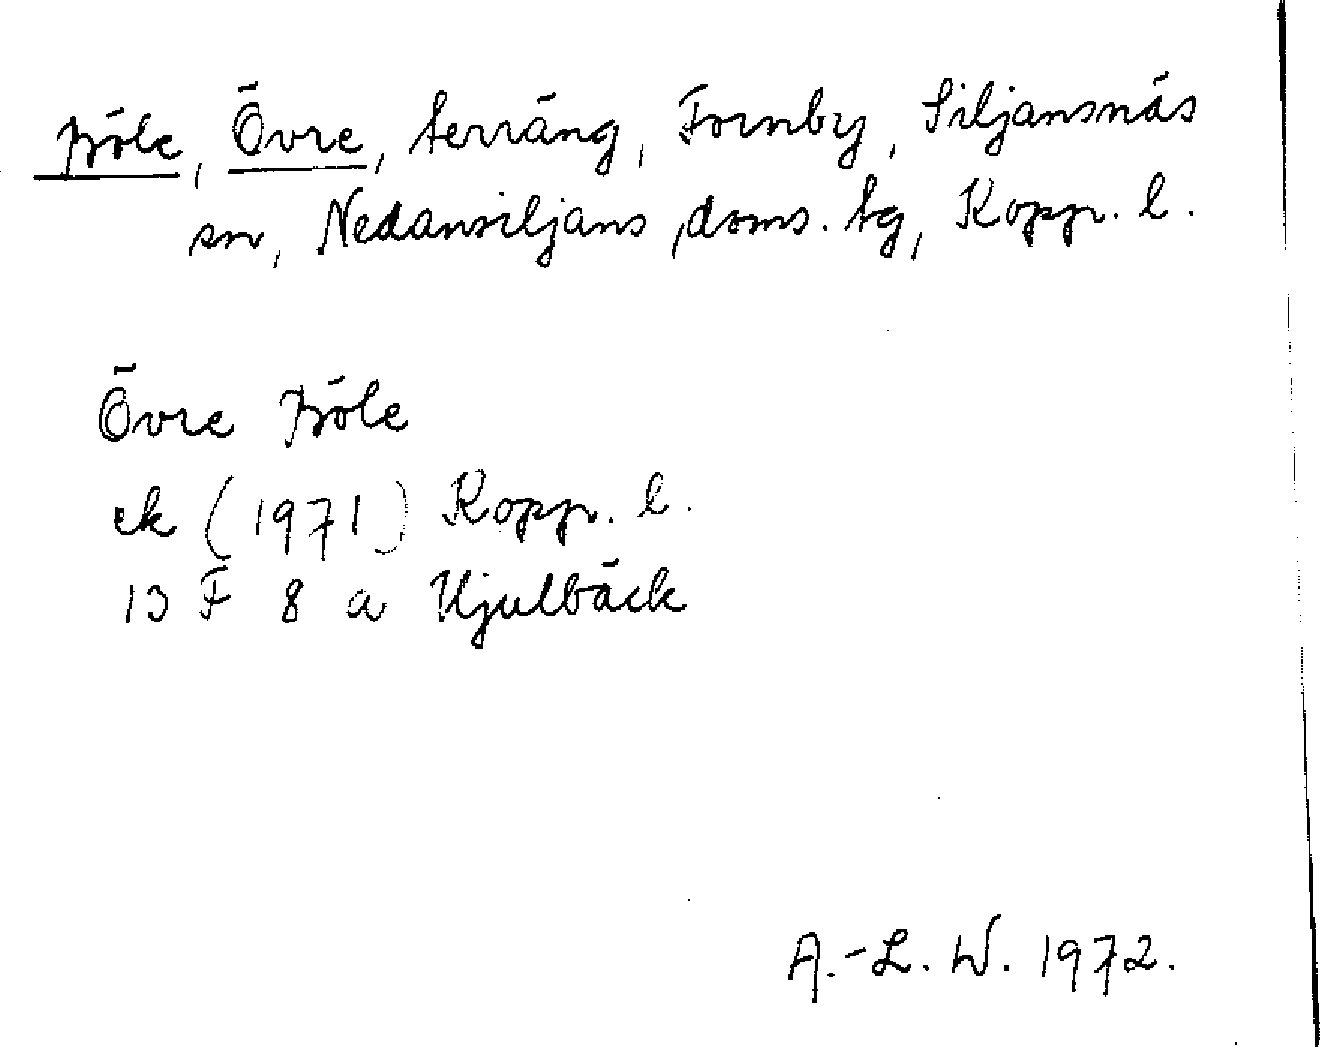 Pöle, Övre, terräng, Fornby, Siljansnäs
sn, Nedansiljans doms. tg, Kopp. l.
Övre Pöle
ek (1971) Kopp. l.
13 F 8 a Hjulbäck
A.-L. W. 1972.